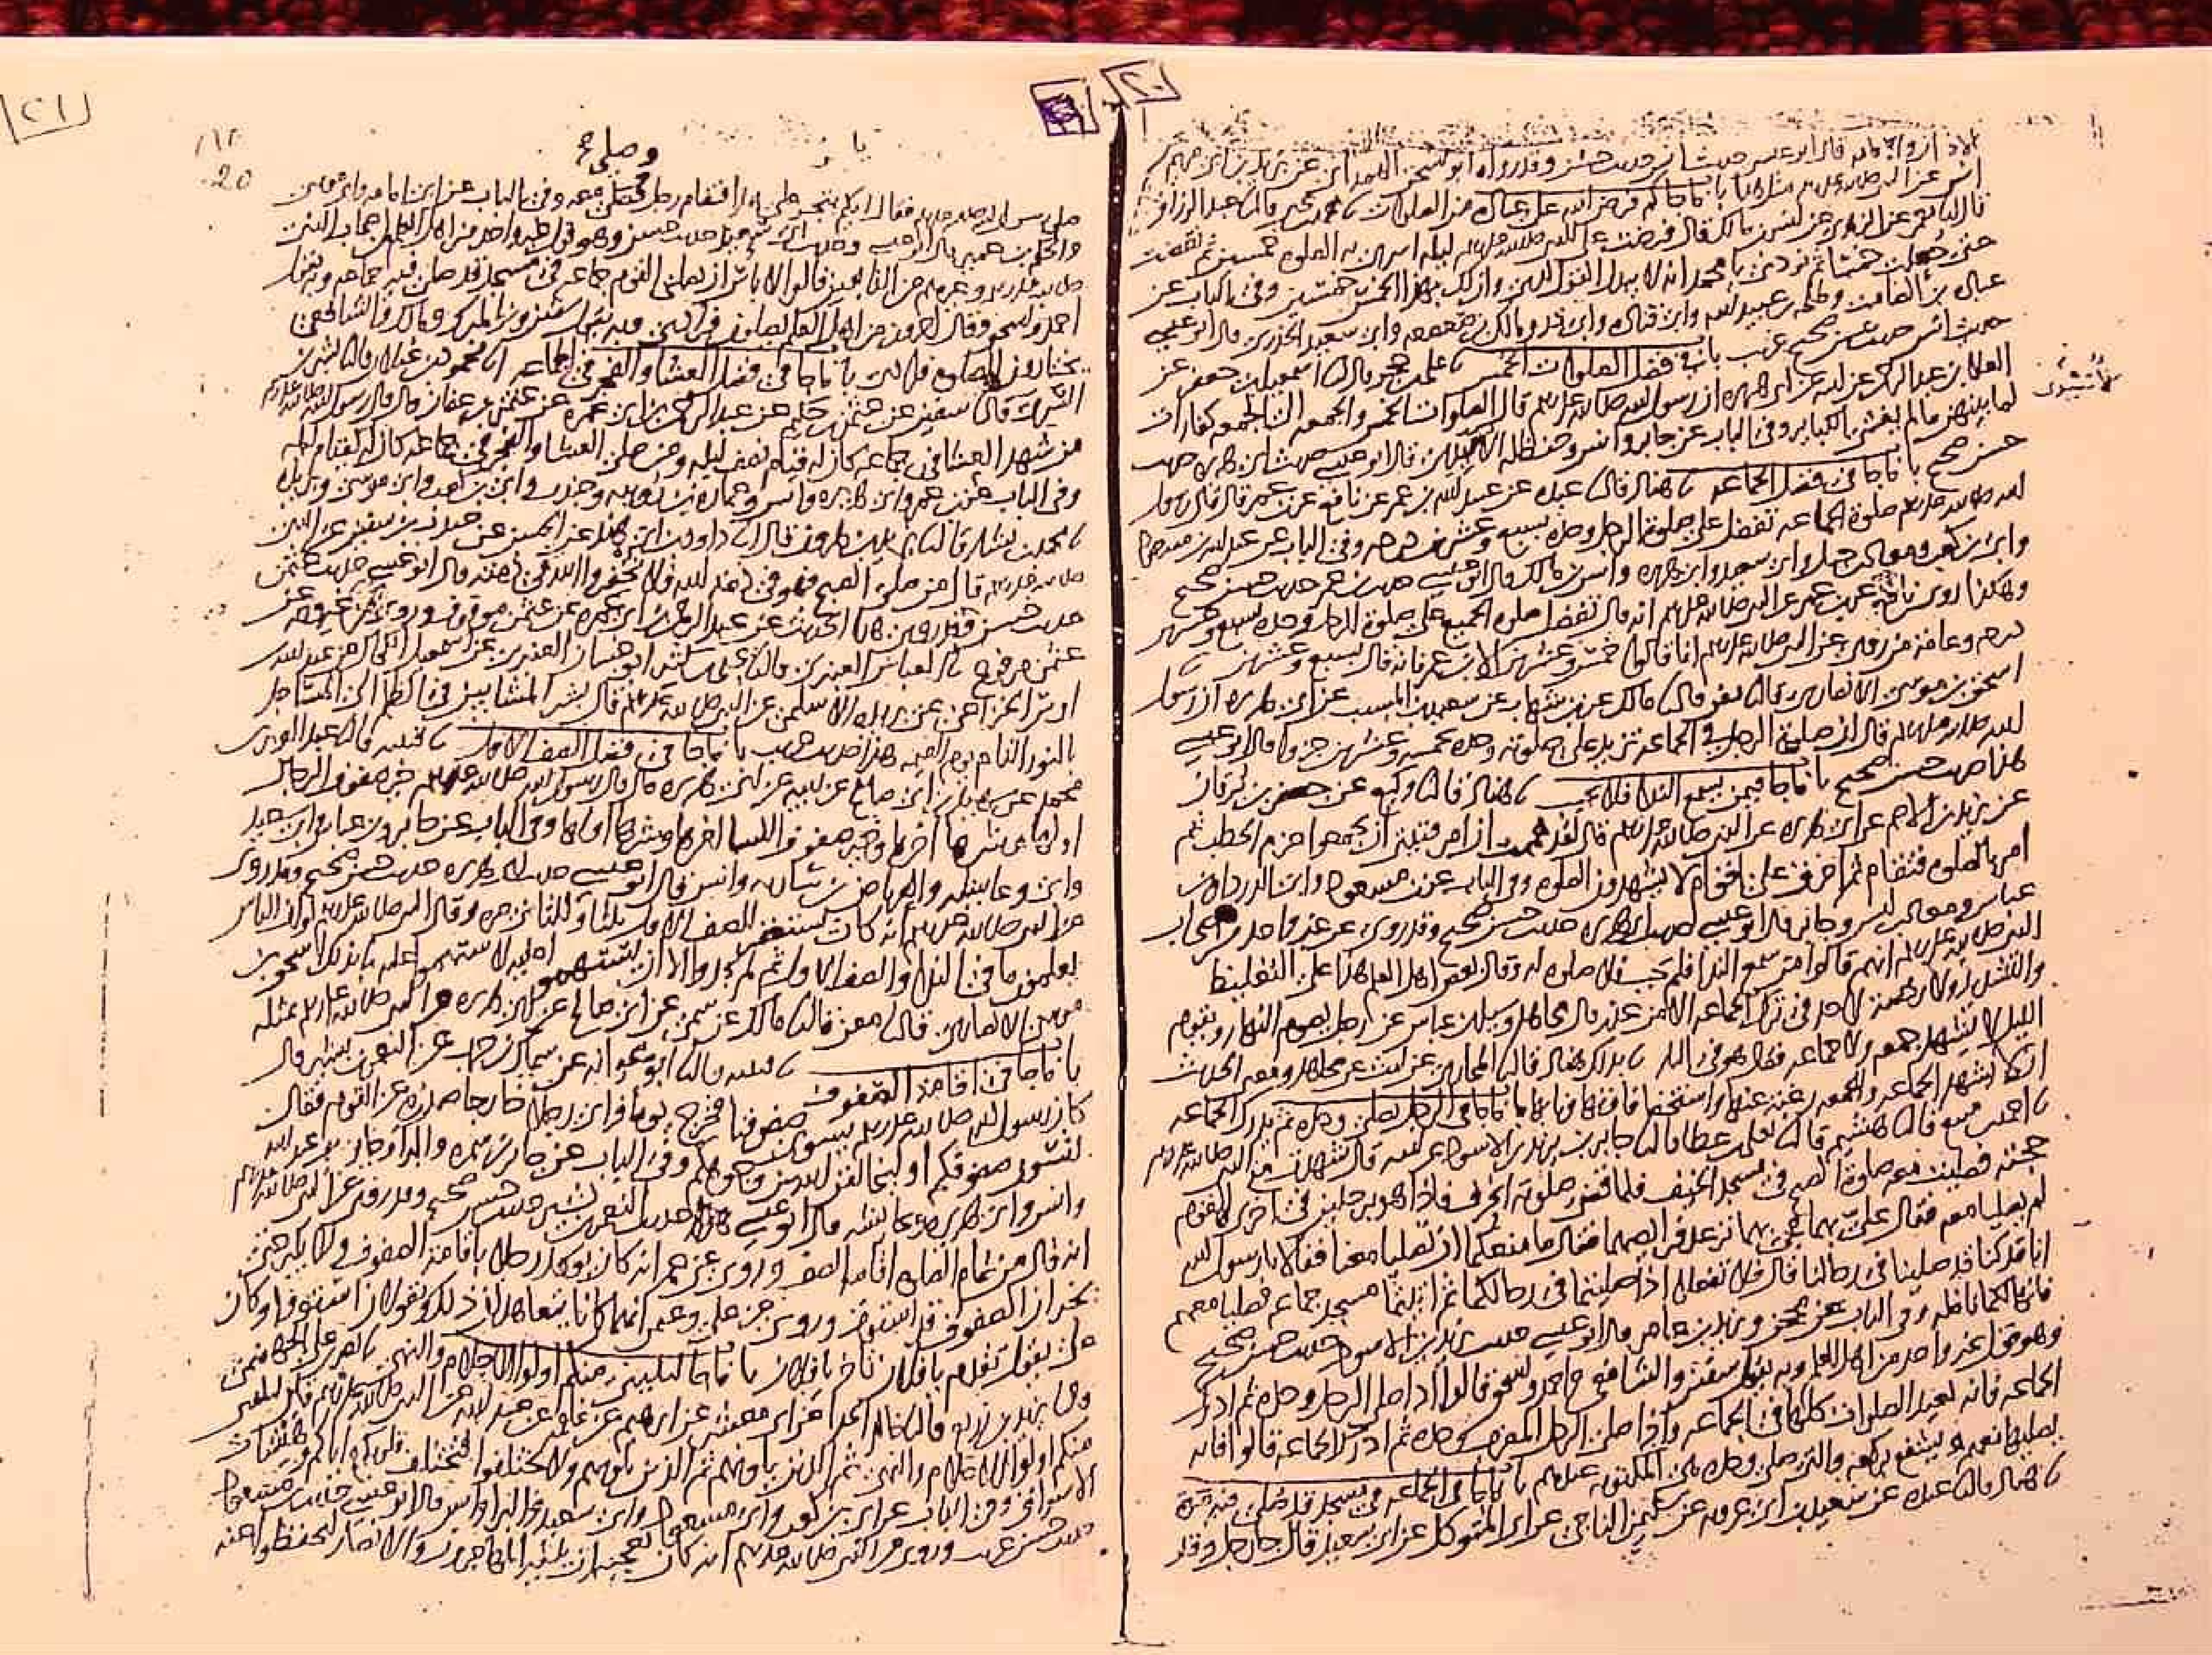 ٢٠
الاذان والاقامه قال ابو عيسى حديث انس حديث حسن وقد رواه ابو اسحق الهمداني عن بريد بن ابي مريم عن
انس عن النبي صلى الله عليه وسلم مثل هذا باب ما جا كم فرض الله على عباده من الصلوات محمد بن يحيى قال نا عبد الرزاق
قال انا معمر عن الزهري عن انس بن مالك قال فرضت على النبي صلى الله عليه وسلم ليلة اسري به الصلوة خمسين ثم نقصت
حتى جعلت خمسا ثم نودي يا محمد انه لا يبدل القول لدي وان لك بهذا الخمس خمسين وفي الباب عن
عبادة بن الصامت وطلحة بن عبيد الله وابي قتادة وابي ذر ومالك بن صعصعه وابي سعيد الخدري قال ابو عيسى
حديث انس حديث حسن صحيح غريب باب في فضل الصلوات الخمس نا علي بن حجر قال نا اسمعيل بن جعفر عن
العلا بن عبد الرحمن عن ابيه عن ابي هريره ان رسول الله صلى الله عليه وسلم قال الصلوات الخمس والجمعه الى الجمعه كفارات
لما بينهن ما لم يغش الكباير وفي الباب عن جابر وانس وحنظله الاسيدي قال ابو عيسى حديث ابي هريره حديث
حسن صحيح باب ما جا في فضل الجماعه نا هناد قال نا عبده عن عبيد الله بن عمر عن نافع عن بن عمر قال قال رسول
الله صلى الله عليه وسلم صلوة الجماعه تفضل على صلوة الرجل وحده بسبع وعشرين درجه وفي الباب عن عبد الله بن مسعود
وابي بن كعب ومعاذ بن جبل وابي سعيد وابي هريره وانس بن مالك قال ابو عيسى حديث بن عمر حديث حسن صحيح
وهكذا روى نافع عن بن عمر عن النبي صلى الله عليه وسلم انه قال تفضل صلوة الجميع على صلوة الرجل وحده بسبع وعشرين
درجه وعامة من روى عن النبي صلى الله عليه وسلم انما قالوا خمس وعشرين الا بن عمر فانه قال بسبع وعشرين نا
اسحق بن موسى الانصاري قال نا معن قال نا مالك عن بن شهاب عن سعيد بن المسيب عن ابي هريره ان رسول
الله صلى الله عليه وسلم قال ان صلوة الرجل في الجماعه تزيد على صلوته وحده بخمسه وعشرين جزوا قال ابو عيسى
هذا حديث حسن صحيح باب ما جا فيمن يسمع الندا فلا يجيب نا هناد قال نا وكيع عن جعفر بن برقان
عن يزيد بن الاصم عن ابي هريره عن النبي صلى الله عليه وسلم قال لقد هممت ان امر فتيتي ان يجمعوا حزم الحطب ثم
امر بالصلوة فتقام ثم احرق على اقوام لا يشهدون الصلوة وفي الباب عن بن مسعود وابي الدردا وبن
عباس ومعاذ بن انس وجابر قال ابو عيسى حديث ابي هريره حديث حسن صحيح وقد روي عن غير واحد من اصحاب
النبي صلى الله عليه وسلم انهم قالوا من سمع الندا فلم يجب فلا صلوة له وقال بعض اهل العلم هذا على التغليظ
والتشديد ولا رخصة لاحد في ترك الجماعه الا من عذر قال مجاهد وسيل بن عباس عن رجل يصوم النهار ويقوم
الليل لا يشهد جمعه ولا جماعه فقال هو في النار نا بذلك هناد قال نا المحاربي عن ليث عن مجاهد ومعنى الحديث
ان لا يشهد الجماعه والجمعه رغبة عنها واستخفافا بحقها وتهاونا بها باب ما جا في الرجل يصلي وحده ثم يدرك الجماعه
نا احمد بن منيع قال نا هشيم قال نا يعلى بن عطا قال نا جابر بن يزيد بن الاسود عن ابيه قال شهدت مع النبي صلى الله عليه وسلم
حجته فصليت معه صلوة الصبح في مسجد الخيف فلما قضى صلوته انحرف فاذا هو برجلين في اخرى القوم
لم يصليا معه فقال علي بهما فجي بهما ترعد فرايصهما فقال ما منعكما ان تصليا معنا فقالا يا رسول الله
انا قد كنا قد صلينا في رحالنا قال فلا تفعلا اذا صليتما في رحالكما ثم اتيتما مسجد جماعه فصليا معهم
فانها لكما نافله وفي الباب عن محجن ويزيد بن عامر قال ابو عيسى حديث يزيد بن الاسود حديث حسن صحيح
وهو قول غير واحد من اهل العلم وبه يقول سفين والشافعي واحمد واسحق قالوا اذا صلى الرجل وحده ثم ادرك
الجماعه فانه يعيد الصلوات كلها في الجماعه واذا صلى الرجل المغرب وحده ثم ادرك الجماعه قالوا فانه
يصليها معهم ويشفع بركعه والتي صلى وحده هي المكتوبه عندهم باب ما جا في الجماعه في مسجد قد صلي فيه مرة
نا هناد قال نا عبده عن سعيد بن ابي عروبه عن سليمن الناجي عن ابي المتوكل عن ابي سعيد قال جا رجل وقد
٢١
20
صلى رسول الله صلى الله عليه وسلم فقال ايكم يتجر على هذا فقام رجل فصلى معه وفي الباب عن ابي امامه وابي موسى
والحكم بن عمير قال ابو عيسى وحديث ابي سعيد حديث حسن وهو قول غير واحد من اهل العلم من اصحاب النبي
صلى الله عليه وسلم وغيرهم من التابعين قالوا لا باس ان يصلي القوم جماعه في مسجد قد صلي فيه جماعه وبه يقول
احمد واسحق وقال اخرون من اهل العلم يصلون فرادى وبه يقول سفين وبن المبارك ومالك والشافعي
يختارون الصلوة فرادى باب ما جا في فضل العشا والفجر في الجماعه نا محمود بن غيلان قال نا بشر بن
السري قال نا سفين عن عثمن بن حكيم عن عبد الرحمن بن ابي عمره عن عثمن بن عفان قال قال رسول الله صلى الله عليه وسلم
من شهد العشا في جماعه كان له قيام نصف ليله ومن صلى العشا والفجر في جماعه كان له كقيام ليله
وفي الباب عن بن عمر وابي هريره وانس وعماره بن رويبه وجندب وابي بن كعب وابي موسى وبريده
نا محمد بن بشار قال نا يزيد بن هرون قال انا داود بن ابي هند عن الحسن عن جندب بن سفين عن النبي
صلى الله عليه وسلم قال من صلى الصبح فهو في ذمة الله فلا تخفروا الله في ذمته قال ابو عيسى حديث عثمن
حديث حسن وقد روي هذا الحديث عن عبد الرحمن بن ابي عمره عن عثمن موقوف وروي من غير وجه عن
عثمن مرفوع نا العباس العنبري قال نا يحيى بن كثير ابو غسان العنبري عن اسمعيل الكحال عن عبد الله بن
اوس الخزاعي عن بريده الاسلمي عن النبي صلى الله عليه وسلم قال بشر المشايين في الظلم الى المساجد
بالنور التام يوم القيمه هذا حديث غريب باب ما جا في فضل الصف الاول نا قتيبه قال نا عبد العزيز بن
محمد عن سهيل بن ابي صالح عن ابيه عن ابي هريره قال قال رسول الله صلى الله عليه وسلم خير صفوف الرجال
اولها وشرها اخرها وخير صفوف النسا اخرها وشرها اولها وفي الباب عن جابر وبن عباس وابي سعيد
وابي وعايشه والعرباض بن ساريه وانس قال ابو عيسى حديث ابي هريره حديث حسن صحيح وقد روي
عن النبي صلى الله عليه وسلم انه كان يستغفر للصف الاول ثلثا وللثاني مره وقال النبي صلى الله عليه وسلم لو ان الناس
يعلمون ما في الندا والصف الاول ثم لم يجدوا الا ان يستهموا عليه لاستهموا عليه نا بذلك اسحق بن
موسى الانصاري قال نا معن قال نا مالك عن سمي عن ابي صالح عن ابي هريره عن النبي صلى الله عليه وسلم مثله
باب ما جا في اقامة الصفوف نا قتيبه قال نا ابو عوانه عن سماك بن حرب عن النعمن بن بشير قال
كان رسول الله صلى الله عليه وسلم يسوي صفوفنا فخرج يوما فراى رجلا خارجا صدره عن القوم فقال
لتسون صفوفكم او ليخالفن الله بين وجوهكم وفي الباب عن جابر بن سمره والبرا وجابر بن عبد الله
وانس وابي هريره وعايشه قال ابو عيسى حديث النعمن بن بشير حديث حسن صحيح وقد روي عن النبي صلى الله عليه وسلم
انه قال من تمام الصلوة اقامة الصف وروي عن عمر انه كان يوكل رجلا باقامة الصفوف ولا يكبر حتى
يخبر ان الصفوف قد استوت وروي عن علي وعثمن انهما كانا يتعاهدان ذلك ويقولان استووا وكان
علي يقول تقدم يا فلان تاخر يا فلان باب ما جا ليليني منكم اولوا الاحلام والنهى نا نصر بن علي الجهضمي
نا يزيد بن زريع قال نا خالد الحذا عن ابي معشر عن ابرهيم عن علقمه عن عبد الله عن النبي صلى الله عليه وسلم قال ليليني
منكم اولوا الاحلام والنهى ثم الذين يلونهم ثم الذين يلونهم ولا تختلفوا فتختلف قلوبكم واياكم وهيشات
الاسواق وفي الباب عن ابي بن كعب وابي مسعود وابي سعيد والبرا وانس قال ابو عيسى حديث بن مسعود
حديث حسن غريب وروي عن النبي صلى الله عليه وسلم انه كان يعجبه ان يليه المهاجرون والانصار ليحفظوا عنه